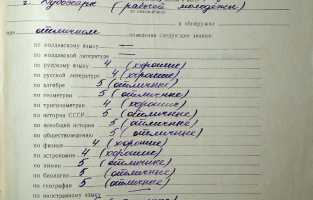 г. Кудояры (рабочей молодежи)
и обнаружил
при отличном поведении следующие знания:
по молдавскому языку —
по молдавской литературе —
по русскому языку 4 (хорошие)
по русской литературе 4 (хорошие)
по алгебре 5 (отличные)
по геометрии 5 (отличные)
по тригонометрии 4 (хорошие)
по истории СССР 5 (отличные)
по всеобщей истории 5 (отличные)
по обществоведению 5 (отличные)
по физике 4 (хорошие)
по астрономии 4 (хорошие)
по химии 5 (отличные)
по биологии 5 (отличные)
по географии 5 (отличные)
по иностранному языку